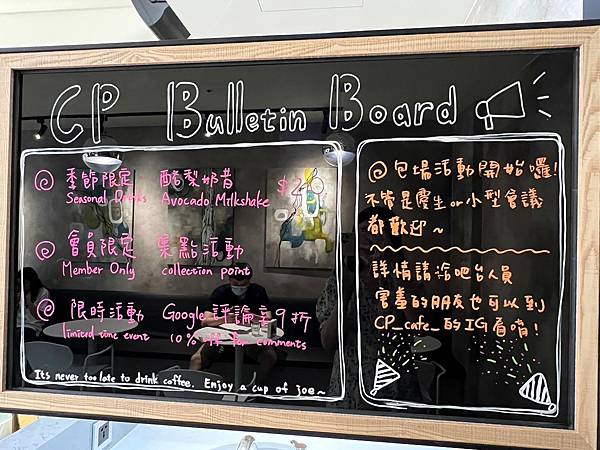 CP Bulletin Board
季節限定 酪梨奶昔
Seasonal Drinks Avocado Milkshake
會員限定 集點活動
Member Only collection point
限時活動 Google評論享9折
limited time event 10% off for comments
Its never too late to drink coffee. Enjoy a cup of joe~
包場活動開始囉!
不管是慶生or小型會議
都歡迎~
詳情請洽吧台人員
害羞的朋友也可以到
CP_cafe_的IG看唷!